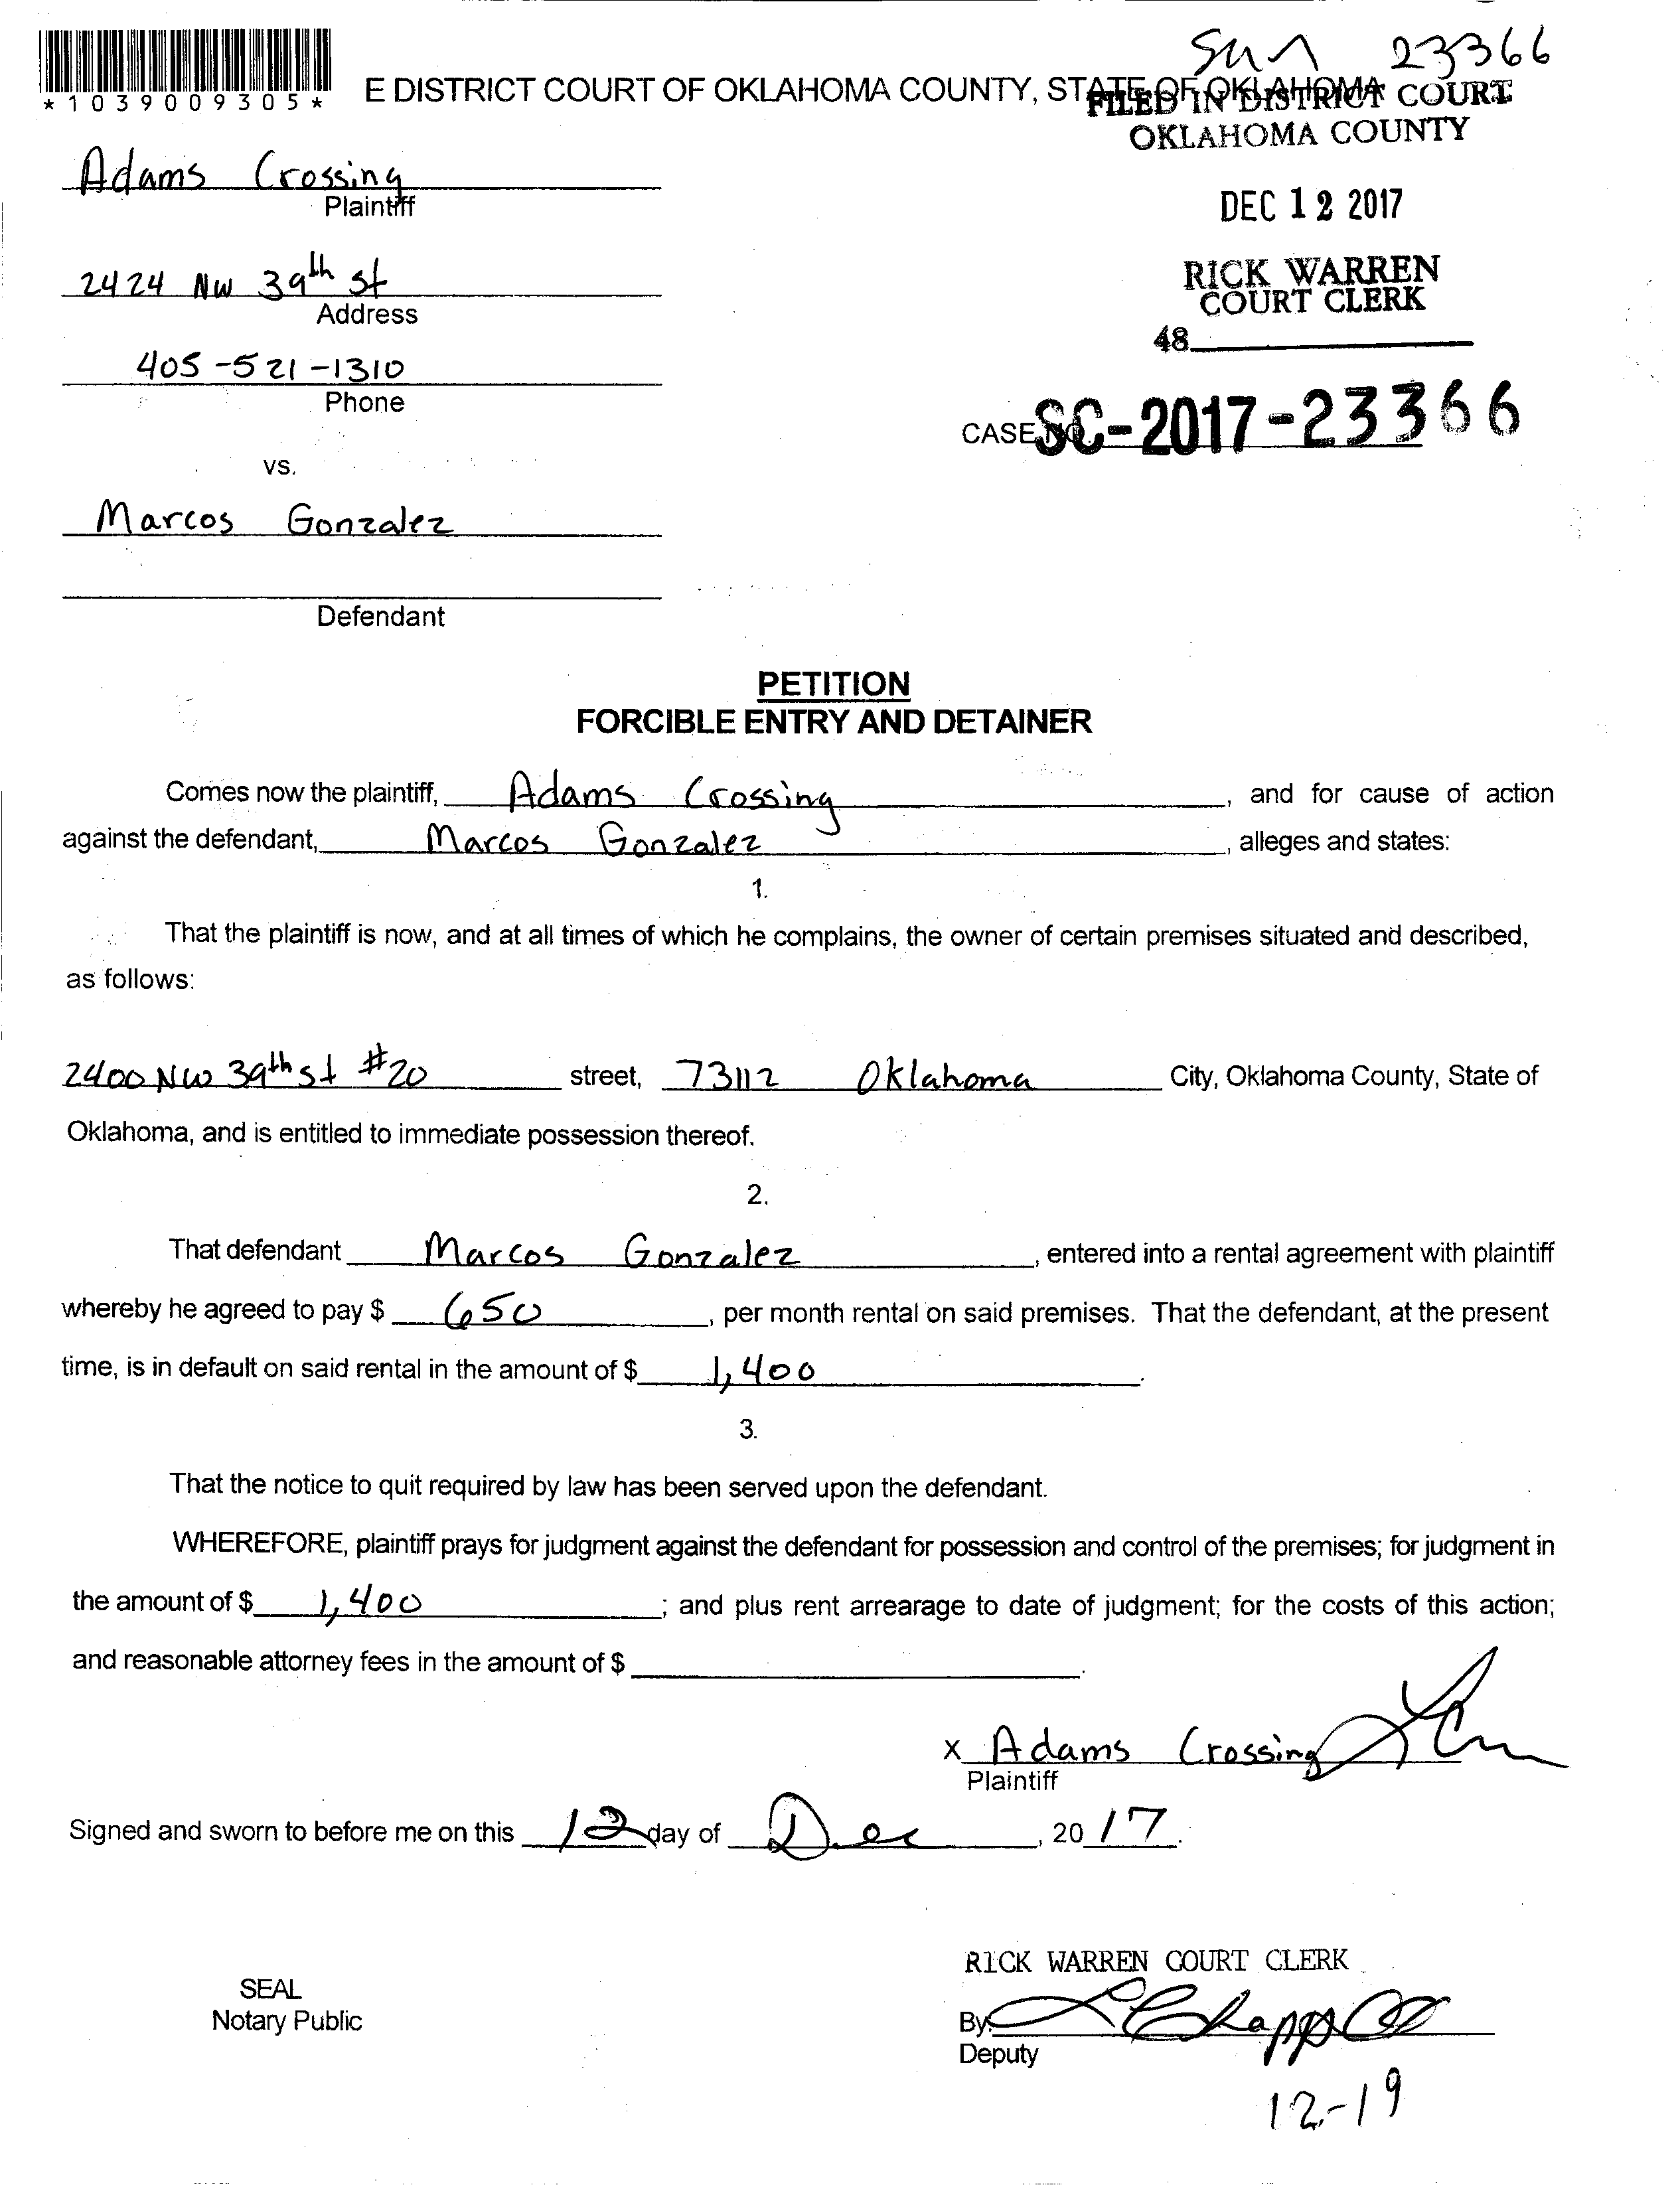 Sun 23366
*1039009305*
E DISTRICT COURT OF OKLAHOMA COUNTY, STATE OF OKLAHOMA
FILED IN DISTRICT COURT
OKLAHOMA COUNTY
Adams Crossing
Plaintiff
DEC 12 2017
2424 NW 39th st
Address
RICK WARREN
COURT CLERK
48
405-521-1310
Phone
CASE NO. SC-2017-23366
vs.
Marcos Gonzalez
Defendant
PETITION
FORCIBLE ENTRY AND DETAINER
Comes now the plaintiff, Adams Crossing, and for cause of action
against the defendant, Marcos Gonzalez, alleges and states:
1.
That the plaintiff is now, and at all times of which he complains, the owner of certain premises situated and described,
as follows:
2400 NW 39th st #20 street, 73112 Oklahoma City, Oklahoma County, State of
Oklahoma, and is entitled to immediate possession thereof.
2.
That defendant Marcos Gonzalez, entered into a rental agreement with plaintiff
whereby he agreed to pay $ 650, per month rental on said premises. That the defendant, at the present
time, is in default on said rental in the amount of $ 1,400.
3.
That the notice to quit required by law has been served upon the defendant.
WHEREFORE, plaintiff prays for judgment against the defendant for possession and control of the premises; for judgment in
the amount of $ 1,400; and plus rent arrearage to date of judgment; for the costs of this action;
and reasonable attorney fees in the amount of $ .
x Adams Crossing
Plaintiff
Signed and sworn to before me on this 12 day of Dec, 20 17.
RICK WARREN COURT CLERK
SEAL
Notary Public
By:
Deputy
12-19